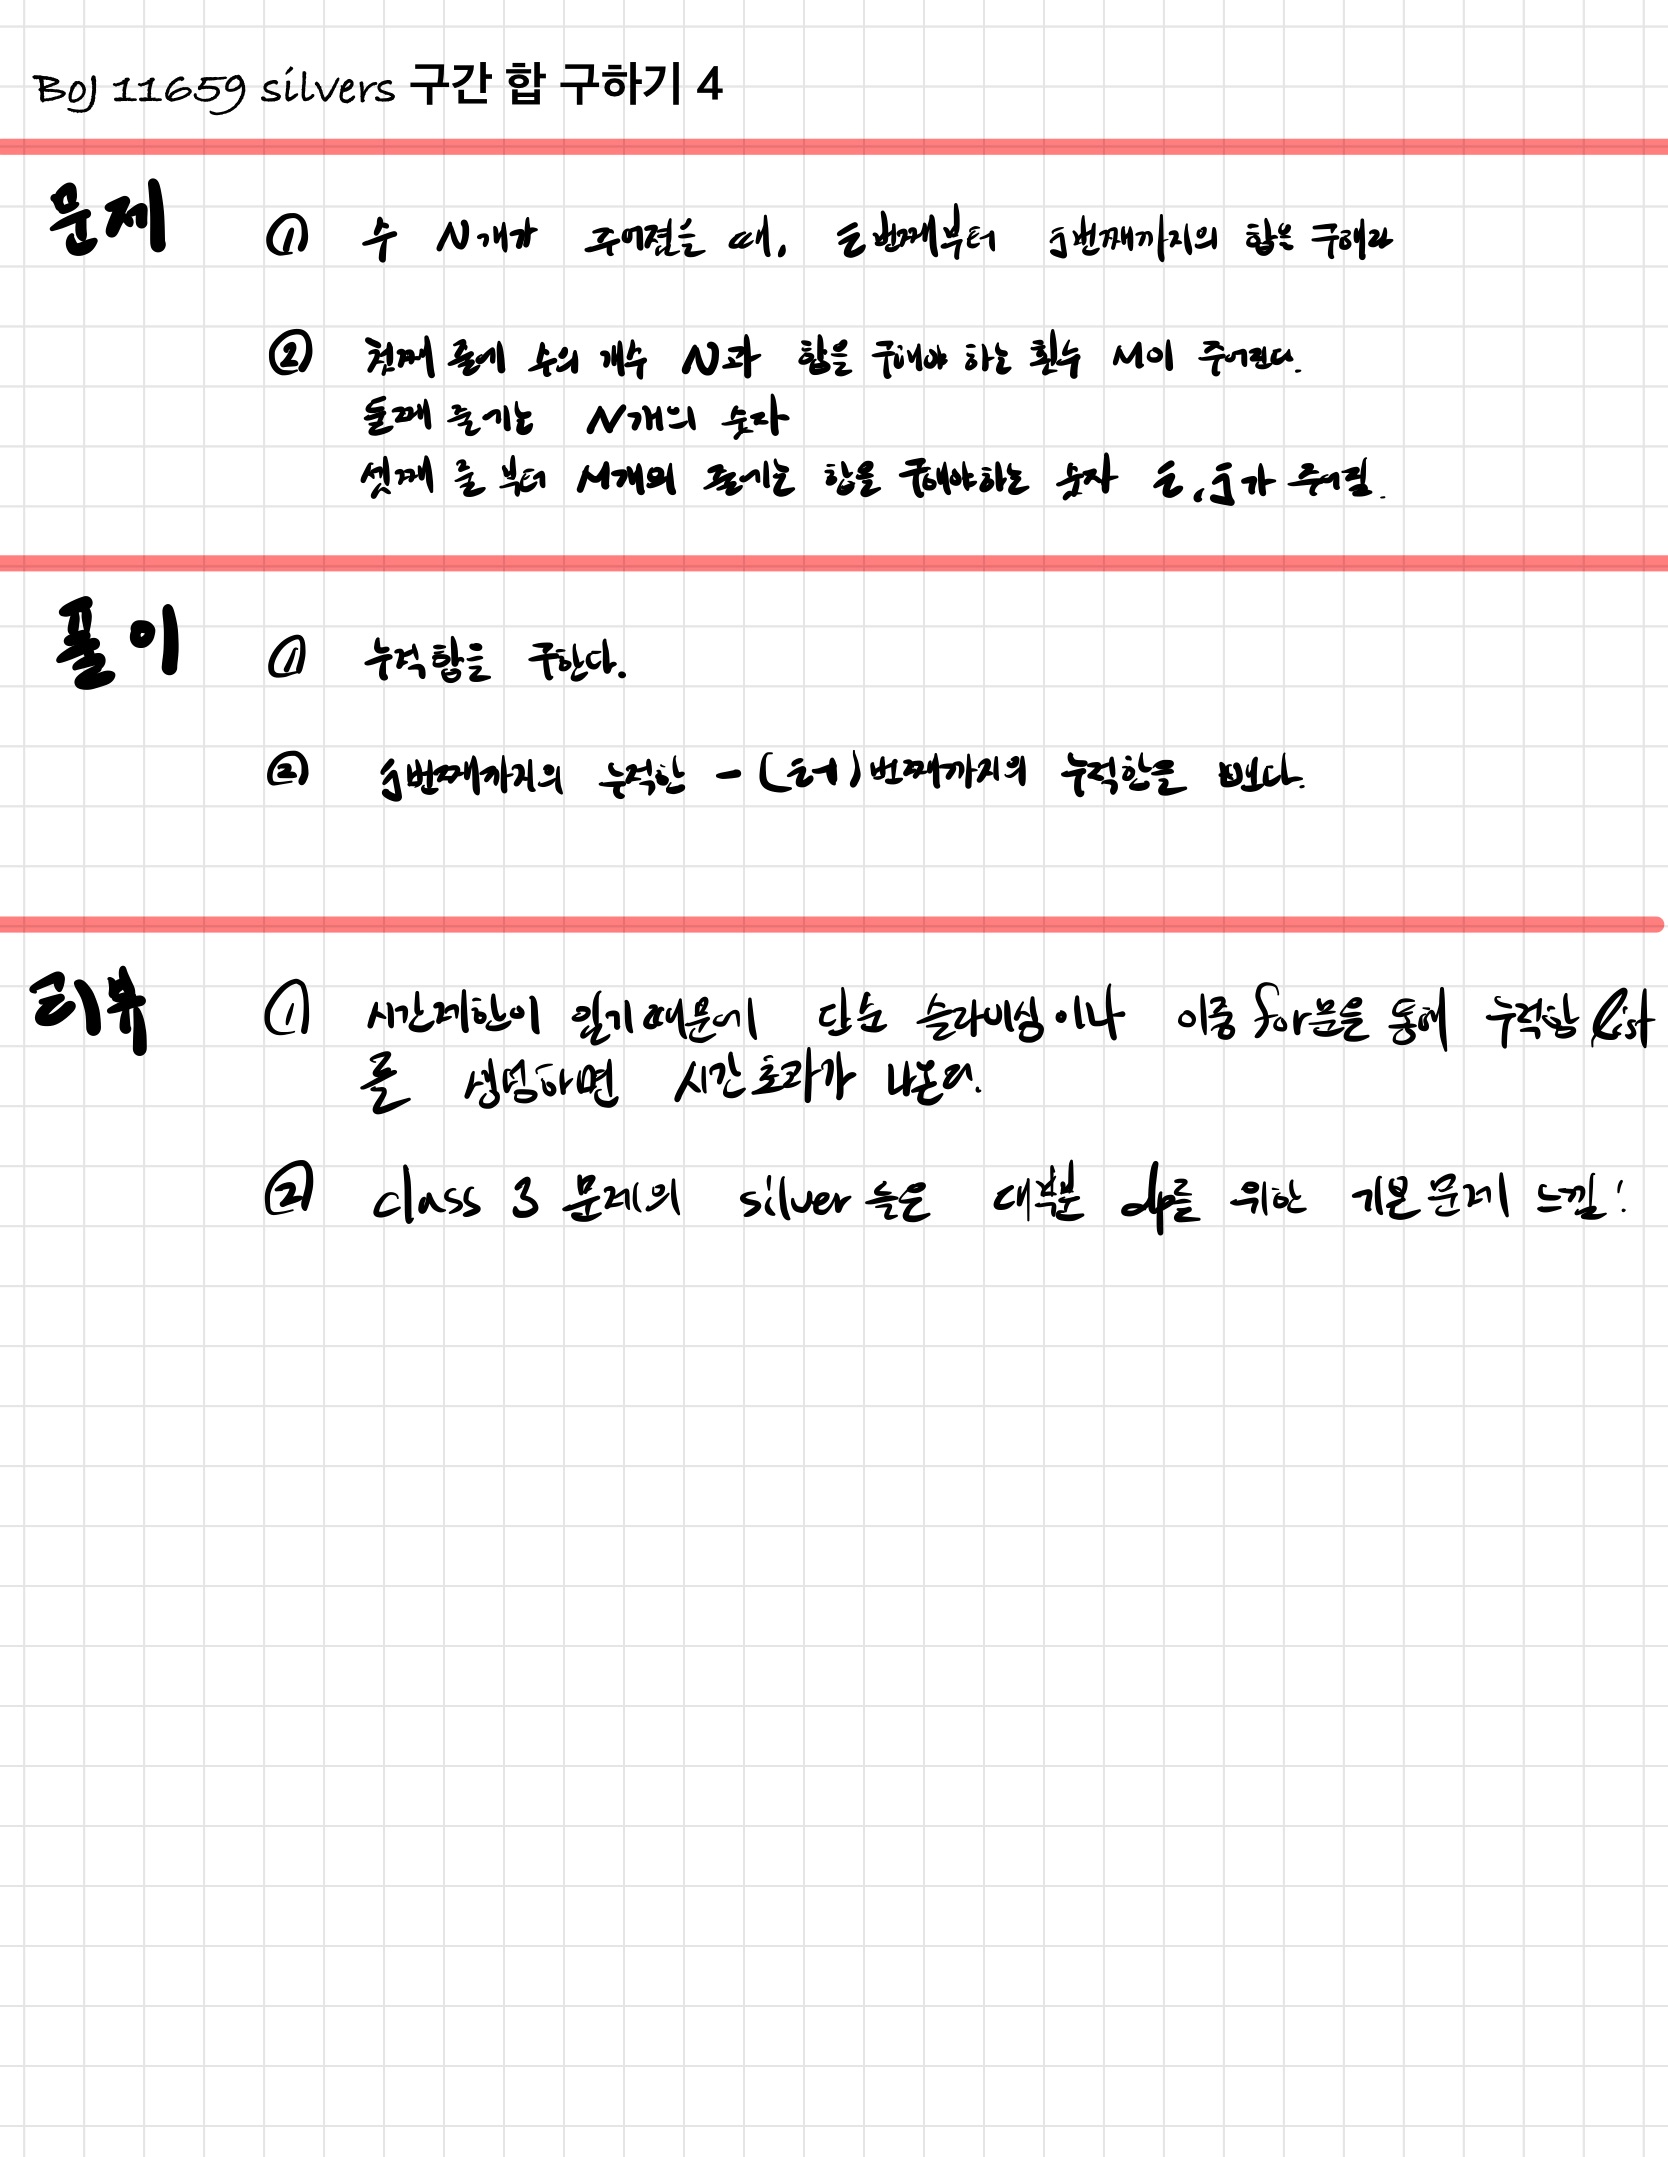 BOJ 11659 silver5 구간 합 구하기 4
문제 ① 수 N개가 주어졌을 때, i번째부터 j번째까지의 합을 구해라
② 첫째 줄에 수의 개수 N과 합을 구해야 하는 횟수 M이 주어진다.
둘째 줄에는 N개의 숫자
셋째 줄 부터 M개의 줄에는 합을 구해야하는 숫자 i, j가 주어짐.
풀이 ① 누적합을 구한다.
② j번째까지의 누적합 - (i-1)번째까지의 누적합을 뺀다.
리뷰 ① 시간제한이 있기때문에 단순 슬라이싱이나 이중 for문을 통해 누적합 list
를 생성하면 시간초과가 나온다.
② class 3 문제의 silver들은 대부분 dp를 위한 기본문제 느낌!